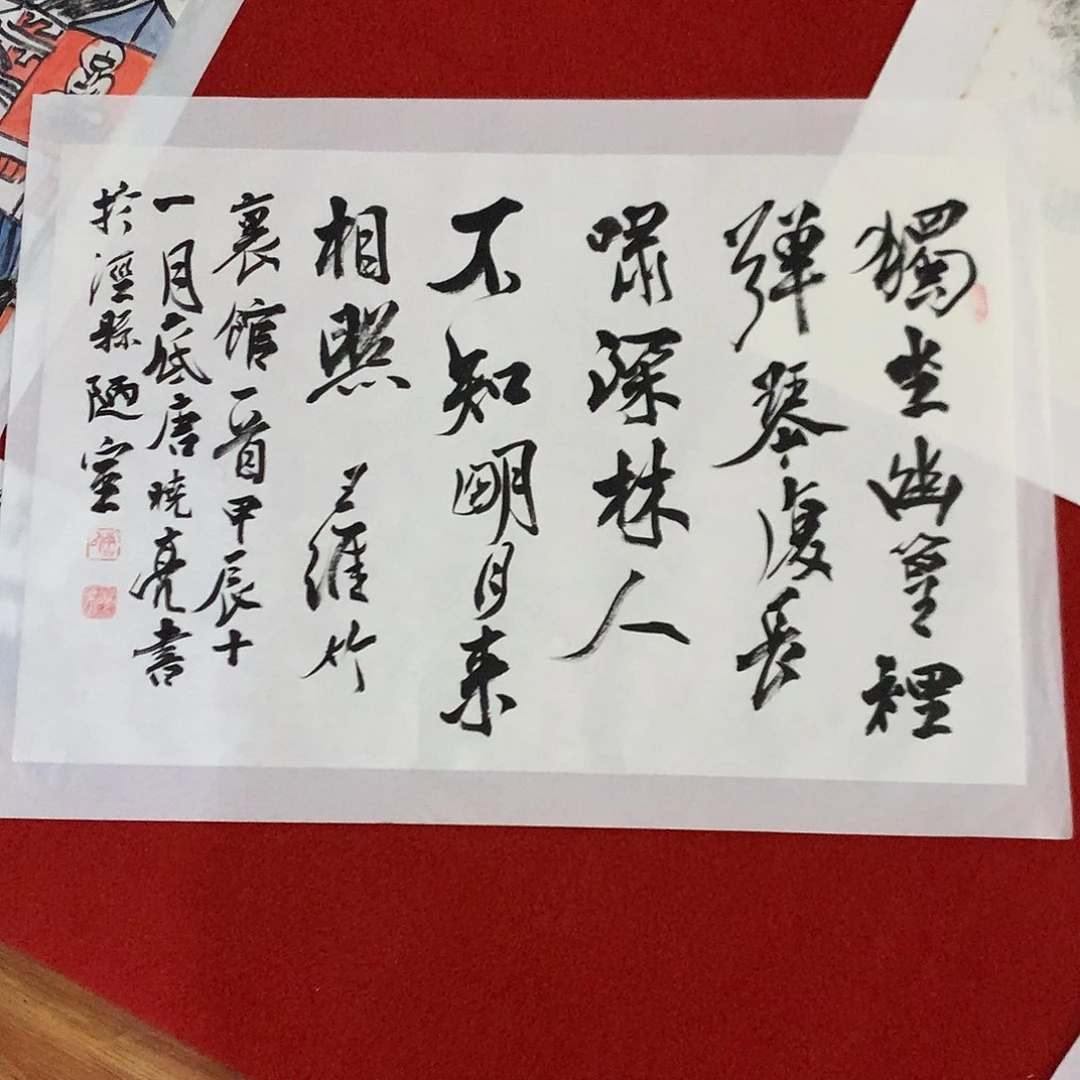 獨坐幽篁裡
彈琴復長
嘯深林人
不知明月来
相照 王維竹
裏館一首甲辰十
一月底唐曉亮書
於涇縣陋室